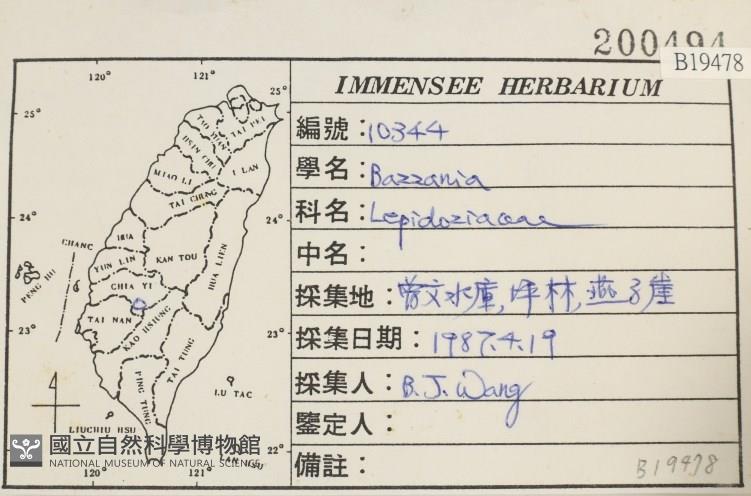 200494
B19478
IMMENSEE HERBARIUM
編號：10344
學名：Bazzania
科名：Lepidoziaceae
中名：
採集地：曾文水庫, 坪林, 燕子崖
採集日期：1987.4.19
採集人：B.J. Wang
鑒定人：
備註：
B19478
120° 121°
25° 25°
TAI PEI
TAO YUAN
HSIN CHU
I LAN
MIAO LI
TAI CHUNG
24° 24°
CHANG
HUA
YUN LIN
KAN TOU
HUA LIEN
PENG HU
CHIA YI
TAI NAN
23° 23°
KAO HSIUNG
TAI TUNG
PING TUNG
LU TAO
LIUCHIU HSU
LAN HSU
22° 22°
120° 121°
國立自然科學博物館
NATIONAL MUSEUM OF NATURAL SCIENCE